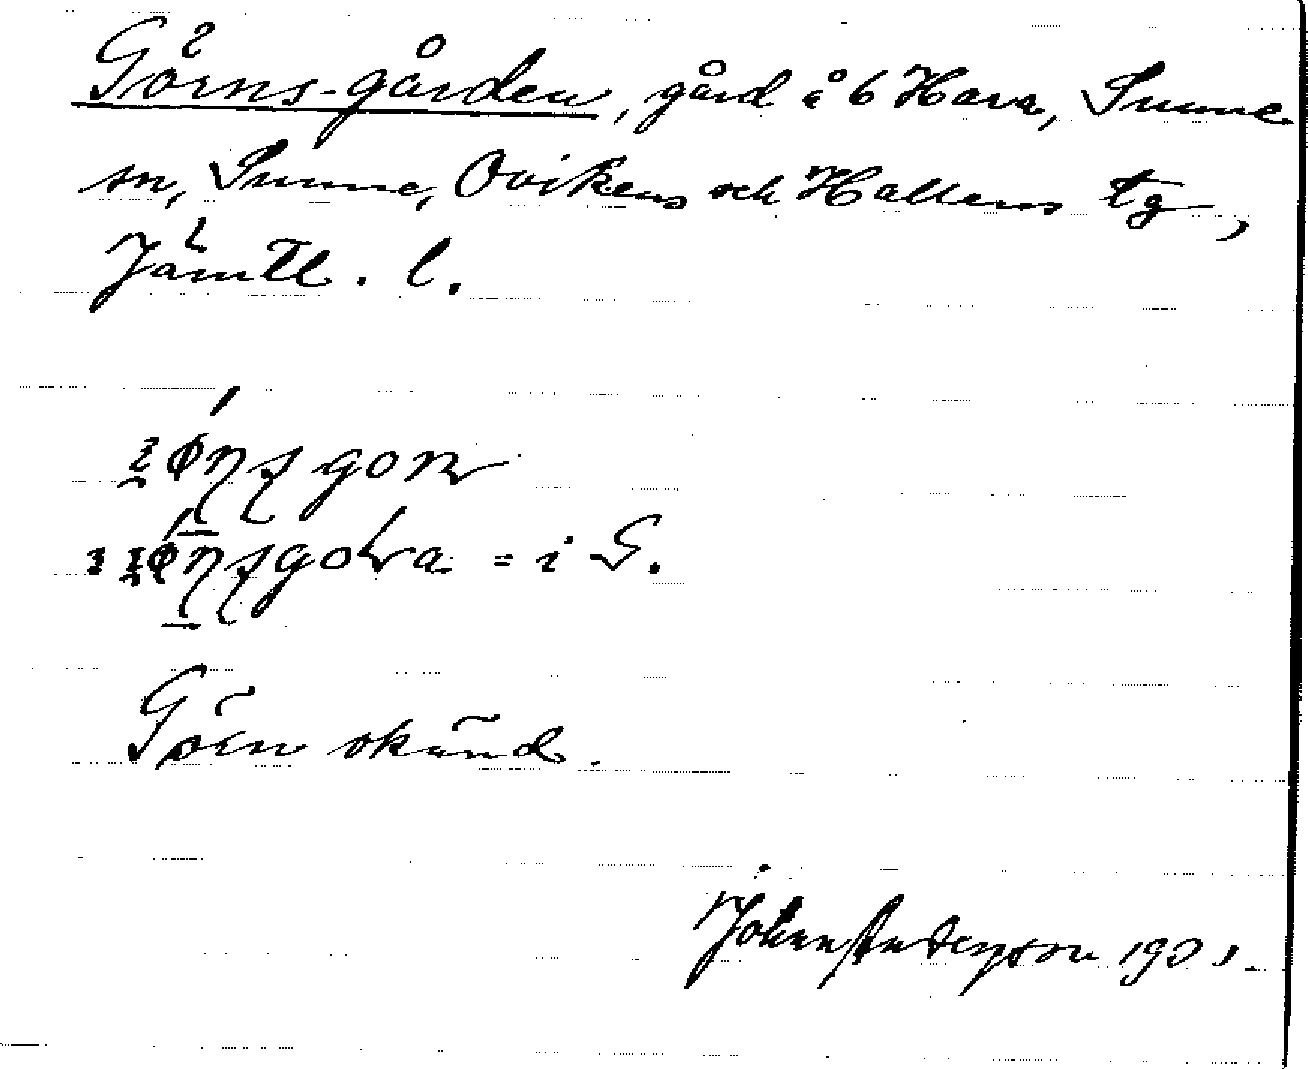 Görns-gården, gård å 6 Hara, Sunne
sn, Sunne, Ovikens och Hallens tg,
Jämtl. l.
= i G.
Görn okänd.
Johan Anderson